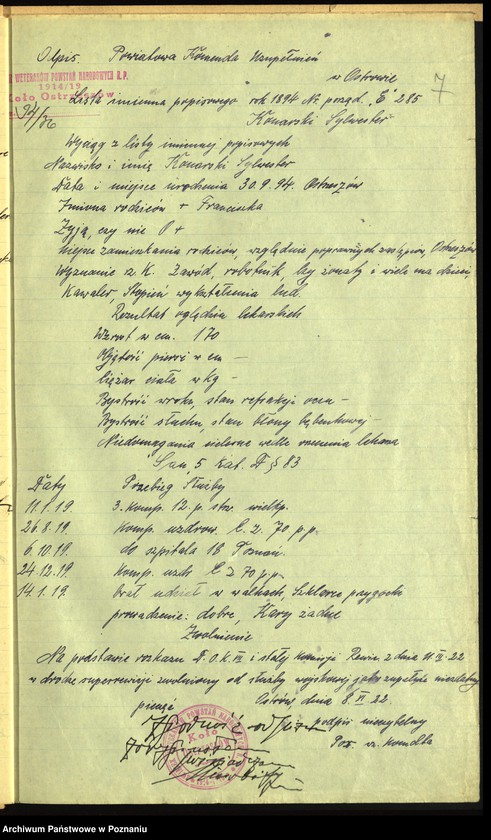 Odpis. Powiatowa Komenda Uzupełnień
w Ostrowie
WETERANÓW POWSTAŃ NARODOWYCH R.P.
1914/19
Koło Ostrzeszów
94/36
7
Lista imienna popisowego rok 1894 Nr. porząd. "E" 285
Konarski Sylwester
Wyciąg z listy imiennej popisowych
Nazwisko i imię Konarski Sylwester
Data i miejsce urodzenia 30.9.94. Ostrzeszów
Imiona rodziców + Franciszka
Żyją, czy nie O +
Miejsce zamieszkania rodziców, względnie poprawnych zastępców, Ostrzeszów
Wyznanie rz. K. Zawód, robotnik, czy żonaty i wiele ma dzieci,
Kawaler Stopień wykształcenia lud.
Rezultat oględzin lekarskich
Wzrost w cm. 170
Objętość piersi w cm —
Ciężar ciała w kg —
Bystrość wroku, stan refrakcji ocza —
Bystrość słuchu, stan błony bębenkowej —
Niedomagania cielesne wedle orzeczenia lekarza
5 kat. D § 83
Daty Przebieg Służby
11.1.19. 3. komp. 12. p. strz. wielkp.
26.8.19. Komp. uzdrow. 70 p.p.
6.10.19. do szpitala 18 Poznań.
24.12.19. Komp. uzdr. 70 p.p.
14.1.19. brał udział w walkach,
prowadzenie: dobre, Kary żadne
Zwolnienie
Na podstawie rozkazu D.O.K. VII i stałej komisji Rewiz. z dnia
w drodze superrewizji zwolniony od służby wojskowej jako zupełnie niezdatny
pieczęć Ostrów, dnia 8. VI. 22.
Zgodność odpisu podpis nieczytelny
Por. w. komdta
Koło
Archiwum Państwowe w Poznaniu